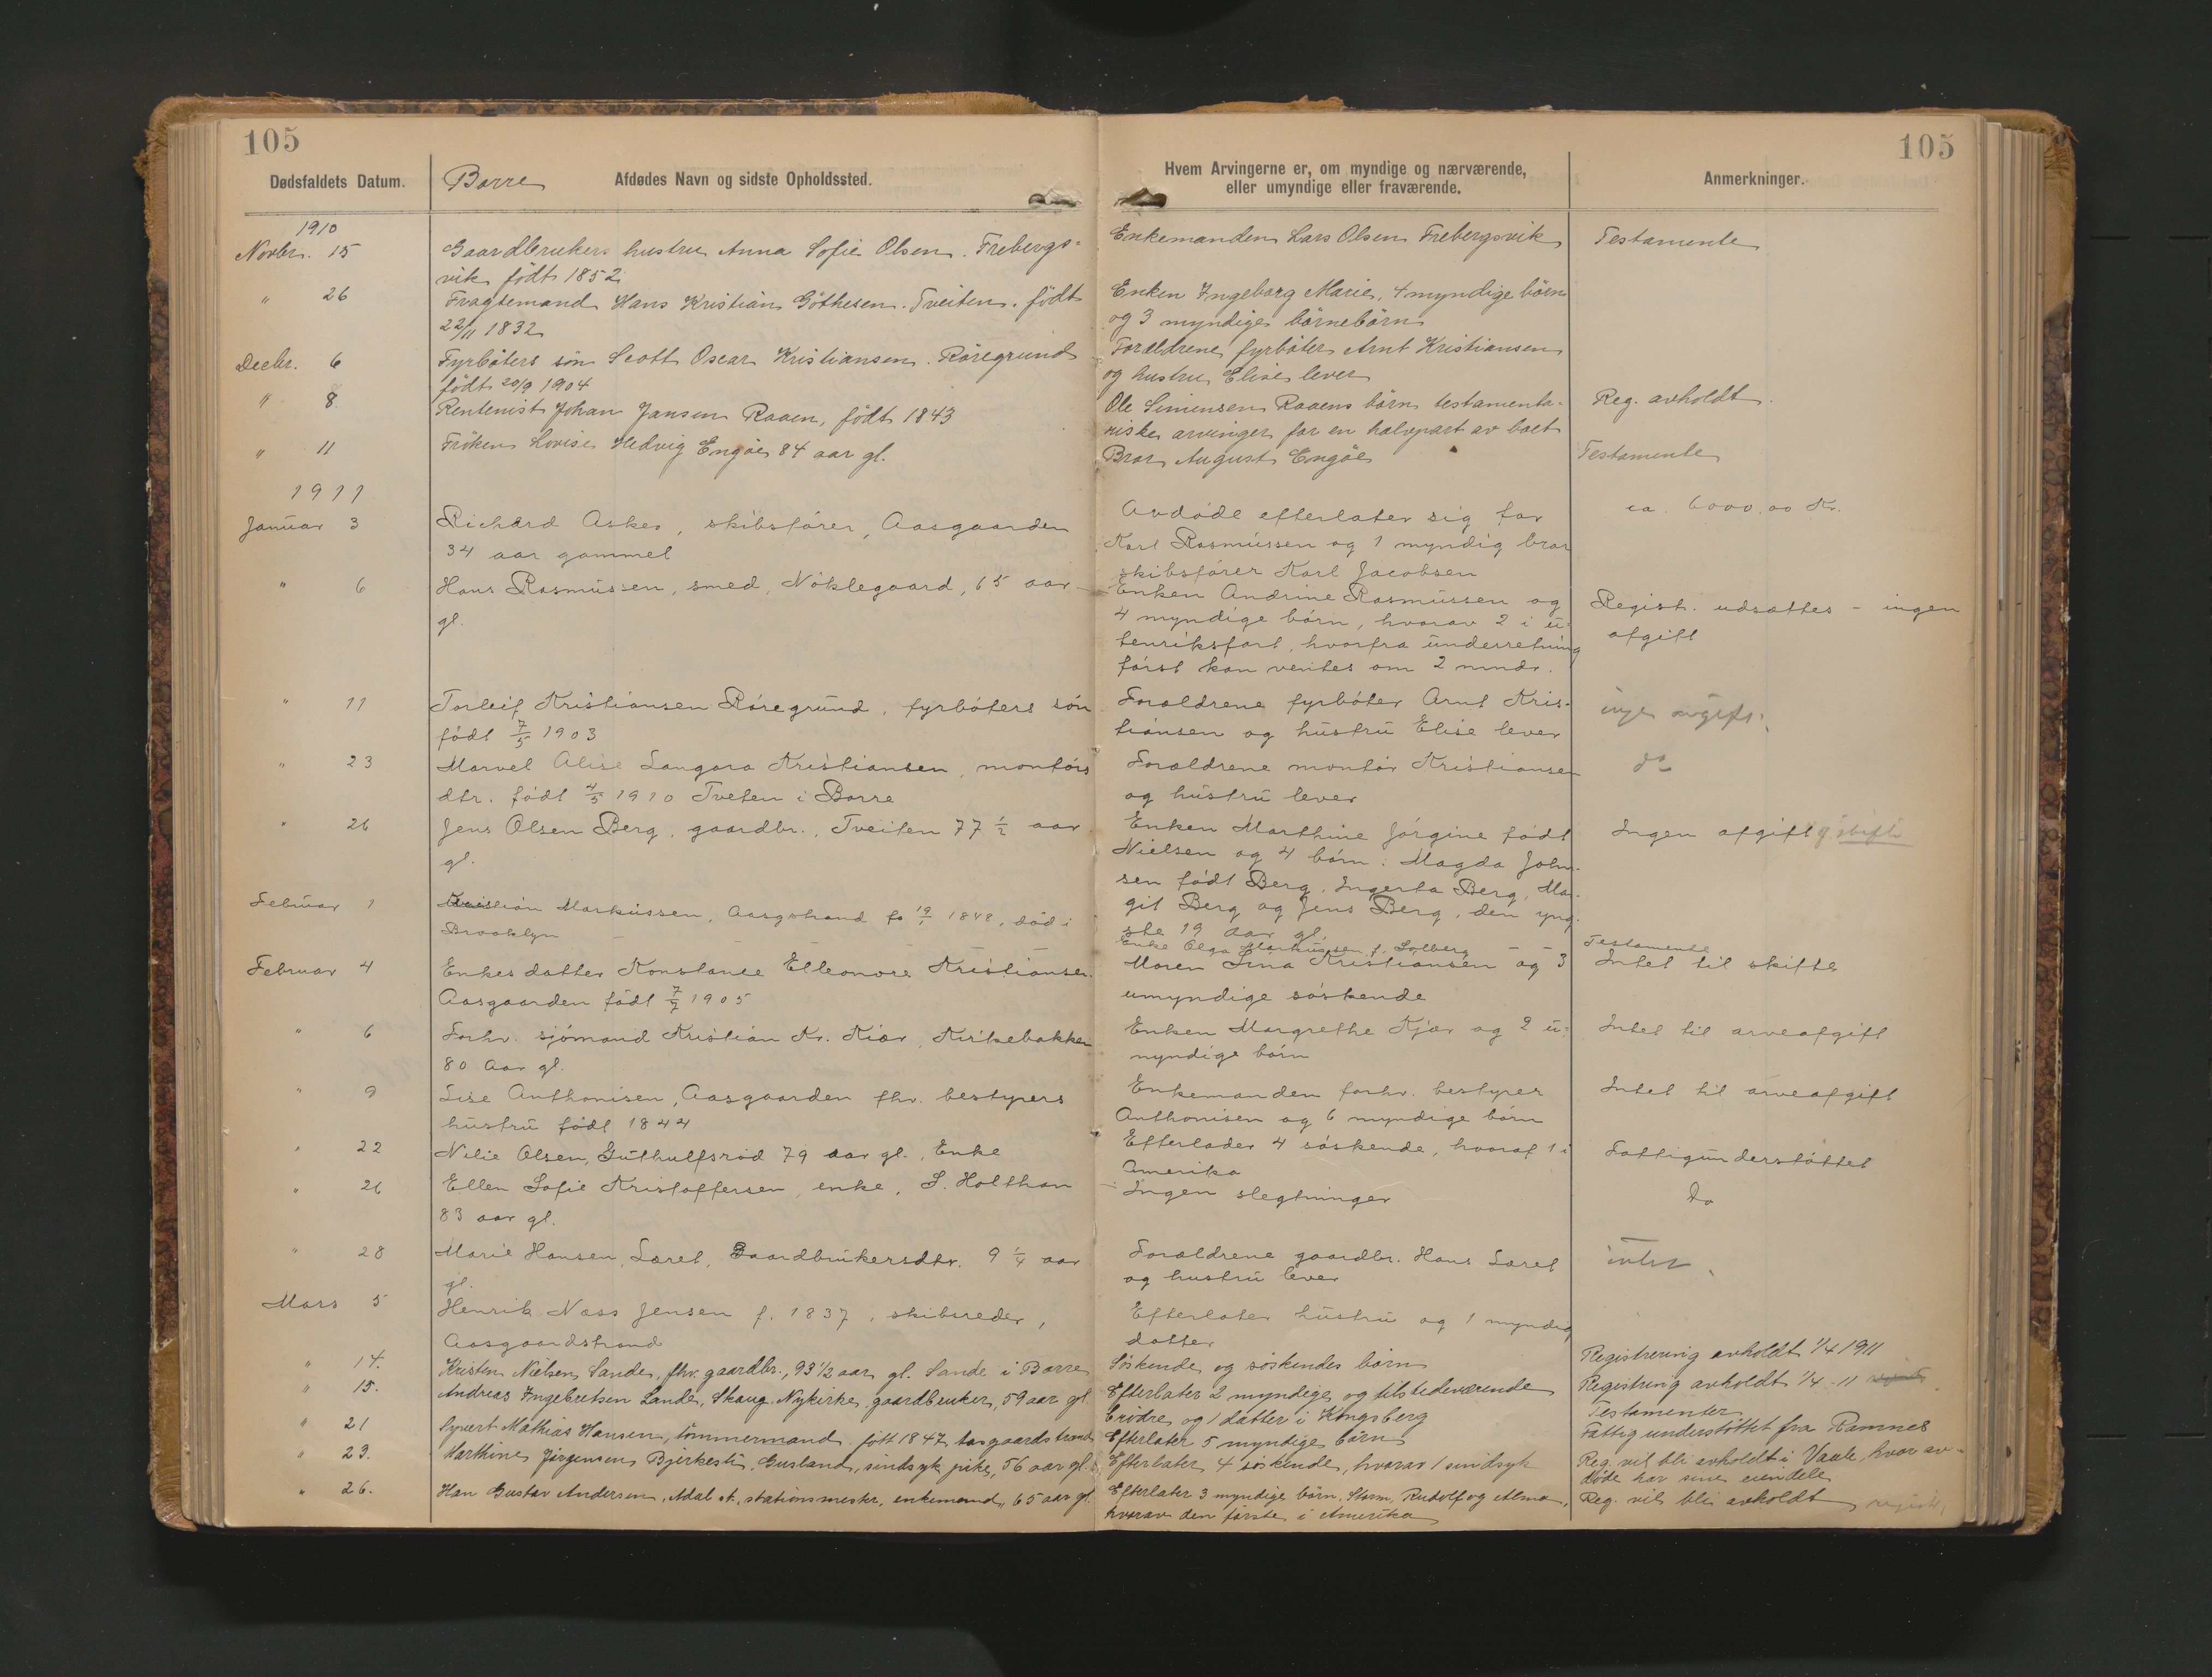 105
105
Dødsfaldets Datum.
Borre
Afdødes Navn og sidste Opholdssted.
Hvem Arvingerne er, om myndige og nærværende,
eller umyndige eller fraværende.
Anmerkninger.
1910
Novbr. 15
Gaardbrukers hustru Anna Sofie Olsen. Frebergs-
vik født 1852
Enkemanden Lars Olsen Frebergsvik
Testamente
" 26
Fragtemand Hans Kristian Göthesen. Tveiten. født
22/11 1832
Enken Ingeborg Marie, 4 myndige börn
og 3 myndige börnebörn
Decbr. 6
Fyrböters sön Scott Oscar Kristiansen. Röregrund
født 20/9 1904
Forældrene fyrböter Arnt Kristiansen
og hustru Elise lever
" 8
Rentenist Johan Jansen Raaen, født 1843
Ole Simensen Raaens börn testamenta-
riske arvinger for en halvpart av boet
Reg. avholdt
" 11
Fröken Lovise Hedvig Engöe 84 aar gl.
Bror August Engöe
Testamente
1911
Januar 3
Richard Asker, skibsfører, Aasgaarden
34 aar gammel
Avdøde efterlater sig far
Karl Rasmussen og 1 myndig bror
skibsfører Karl Jacobsen
ca. 6000,00 Kr.
" 6
Hans Rasmussen, smed, Nöklegaard, 65 aar
gl.
Enken Andrine Rasmussen og
4 myndige börn, hvorav 2 i u-
tenriksfart, hvorfra underretning
først kan ventes om 2 mndr.
Regist. udsættes - ingen
afgift
" 11
Torleif Kristiansen Röregrund, fyrböters sön
født 7/5 1903
Forældrene fyrböter Arnt Kris-
tiansen og hustru Elise lever
ingen avgift.
" 23
Marvel Alise Langora Kristiansen, montörs
dtr. født 4/5 1910 Tveten i Borre
Forældrene montör Kristiansen
og hustru lever
do
" 26
Jens Olsen Berg, gaardbr., Tveiten 77 1/2 aar
gl.
Enken Marthine Jörgine født
Nielsen og 4 börn: Magda John-
sen født Berg, Ingerta Berg, Ma-
git Berg og Jens Berg, den yng-
ste 19 aar gl.
Ingen afgift
Februar 1
Kristian Markussen, Aasgstrand f. 1848, död i
Brooklyn
Enke Olga Markussen f. Solberg
Testamente
Februar 4
Enkes datter Konstance Elleonore Kristiansen.
Aasgaarden født 7/7 1905
Moren Lina Kristiansen og 3
umyndige söskende
Intet til skifte
" 6
Forhv. sjömand Kristian Kr. Kiær, Kirkebakken
80 Aar gl.
Enken Margrethe Kjær og 2 u-
myndige börn
Intet til arveafgift
" 9
Lise Anthonisen, Aasgaarden fhv. bestyrers
hustru født 1844
Enkemanden forhv. bestyrer
Anthonisen og 6 myndige börn
Intet til arveafgift
" 22
Nilie Olsen, Guthulfsröd 79 aar gl., Enke
Efterlader 4 söskende, hvoraf 1 i
Amerika
Fattigunderstöttet
" 26
Ellen Sofie Kristoffersen, enke, S. Holthan
83 aar gl.
Ingen slegtninger
Do
" 28
Marie Hansen, Læret, Gaardbrukersdtr. 9 1/4 aar
gl.
Forældrene gaardbr. Hans Læret
og hustru lever
intet.
Mars 5
Henrik Næss Jensen f. 1837, skibsreder,
Aasgaardstrand
Efterlater hustru og 1 myndig
datter
" 14.
Kristen Nielsen Sande, fhv. gaardbr., 93 1/2 aar gl. Sande i Borre
Söskende og söskendes börn
Registrering avholdt 1/4 1911
" 15.
Andreas Ingebretsen Sande, Skaug. Nykirke, gaardbruker, 59 aar gl.
Efterlater 2 myndige og tilstedeværende
brödre og 1 datter i Kongsberg
Registring avholdt 1/4 - 11
Testamenter
" 21
Syvert Mathias Hansen, tömmermand, født 1847, Aasgaardstrand
Efterlater 5 myndige börn
Fattigunderstöttet fra Ramnes
" 23.
Marthine Jörgensen Bjerkesti, Gusland, sindsyk pike, 56 aar gl.
Efterlater 4 söskende, hvorav 1 sindsyk
Reg. vil bli avholdt i Vaale, hvor av-
döde har sine eiendele
" 26.
Han Gustav Andersen, Adal st., stationsmester, enkemand, 65 aar gl.
Efterlater 3 myndige börn, Storm, Rudolf og Alma,
hvorav den første i Amerika
Reg. vil bli avholdt